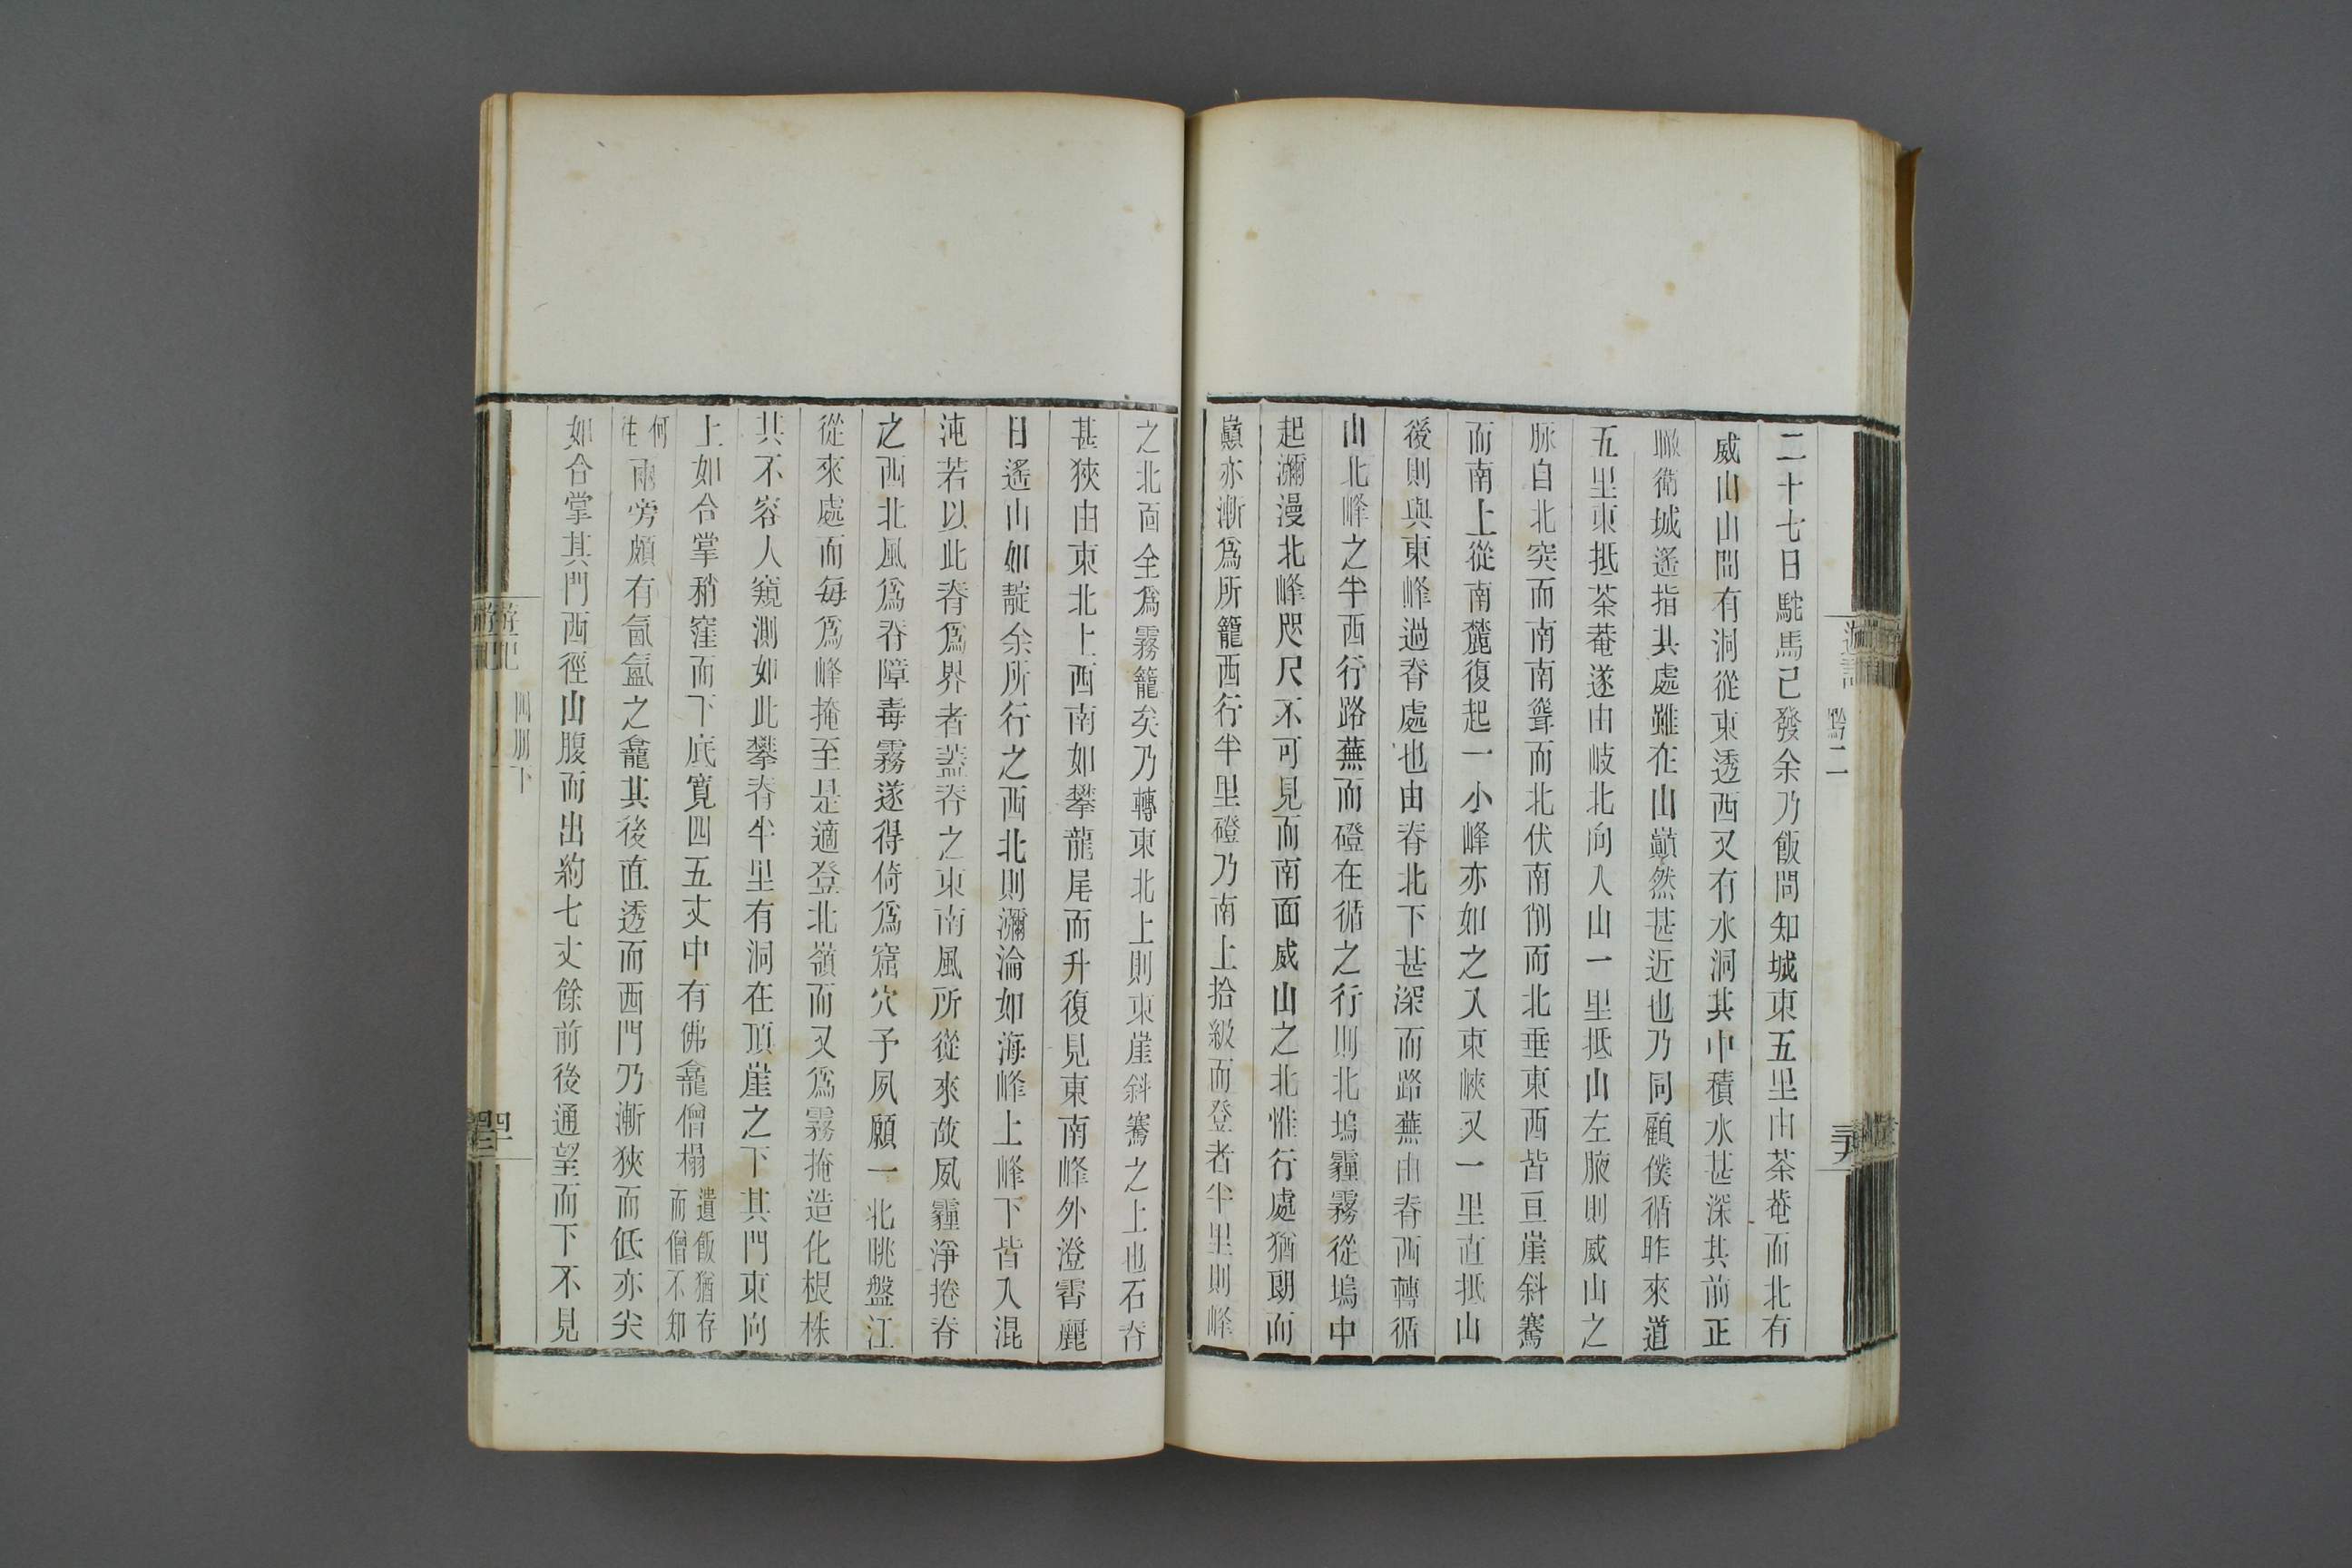 二十七日駝馬已發余乃飯問知城東五里由茶菴而北有
威山山間有洞從東透西又有水洞其中積水甚深其前正
瞰衛城遙指其處雖在山巔然甚近也乃同顧僕循昨來道
五里東抵茶菴遂由岐北向入山一里抵山左腋則威山之
脈自北突而南南聳而北伏南削而北垂東西皆亘崖斜騫
而南上從南麓復起一小峰亦如之入東峽又一里直抵山
後則與東峰過脊處也由脊北下甚深而路蕪由脊西轉循
山北峰之半西行路蕪而磴在循之行則北塢霾霧從塢中
起瀰漫北峰咫尺不可見而南面威山之北惟行處猶朗而
巔亦漸爲所籠西行半里磴乃南上拾級而登者半里則峰
之北面全爲霧籠矣乃轉東北上則東崖斜騫之上也石脊
甚狹由東北上西南如攀龍尾而升復見東南峰外澄霽麗
日遙山如靛余所行之西北則瀰淪如海峰上峰下皆入混
沌若以此脊爲界者蓋脊之東南風所從來故夙霾淨捲脊
之西北風爲脊障毒霧遂得倚爲窟穴予夙願一北眺盤江
從來處而每爲峰掩至是適登北嶺而又爲霧掩造化根株
其不容人窺測如此攀脊半里有洞在頂崖之下其門東向
上如合掌稍窪而下底寬四五丈中有佛龕僧榻遺飯猶存而僧不知
何往兩旁頗有氤氳之龕其後直透而西門乃漸狹而低亦尖
如合掌其門西徑山腹而出約七丈餘前後通望而下不見
遊記
黔二
遊記
四册下